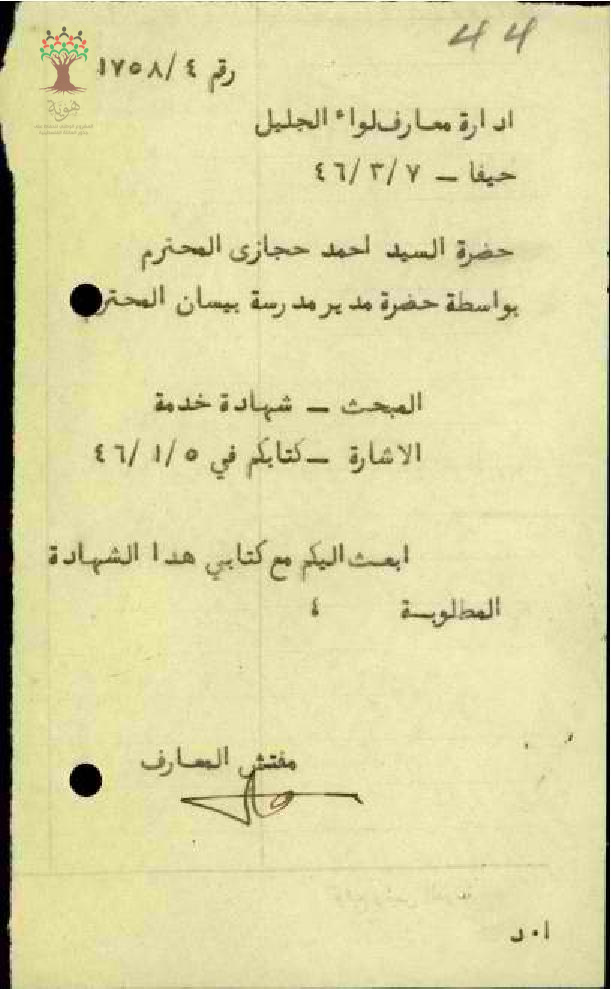 44
هوية
رقم ٤/١٧٥٨
ادارة معارف لواء الجليل
حيفا ـ ٤٦/٣/٧
حضرة السيد احمد حجازى المحترم
بواسطة حضرة مدير مدرسة بيسان المحترم
المبحث ـ شهادة خدمة
الاشارة ـ كتابكم في ٤٦/١/٥
ابعث اليكم مع كتابي هدا الشهادة
المطلوبة ٤
مفتش المعارف
ا٠د